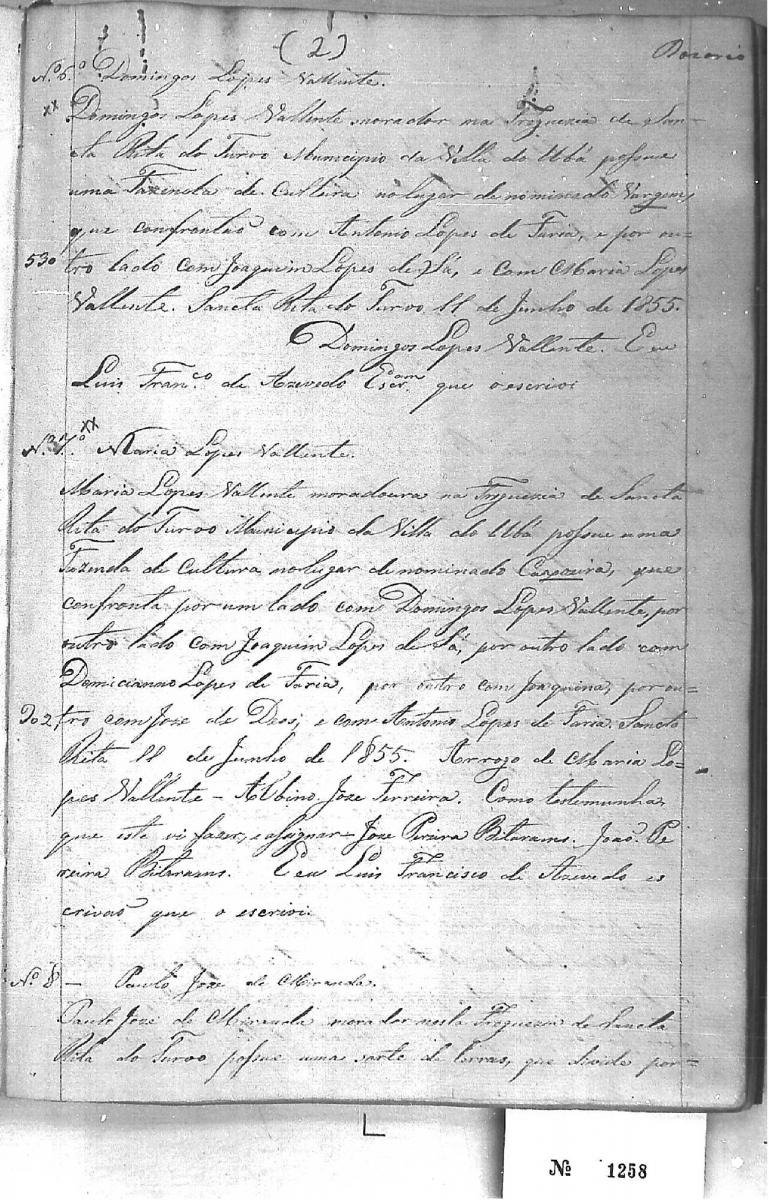 (2)
Rozorio
Nº 6.º Domingos Lopes Vallente.
xx Domingos Lopes Vallente morador na Freguezia de San-
cta Rita do Turvo Municipio da Villa do Ubá possue
uma Fazenda de Cultura no lugar denominado Vargem,
que confrontão com Antonio Lopes de Faria, e por ou-
530 tro lado com Joaquim Lopes de Sá, e com Maria Lopes
Vallente. Sancta Rita do Turvo 11 de Junho de 1855.
Domingos Lopes Vallente. E eu
Luis Fran.co de Azevedo Escr.am que o escrivi
Nº 7.º xx Maria Lopes Vallente.
Maria Lopes Vallente moradoura na Freguezia de Sancta
Rita do Turvo Municipio da Villa do Ubá possue uma
Fazenda de Cultura no lugar denominado Capoeira, que
confronta por um lado com Domingos Lopes Vallente, por
outro lado com Joaquim Lopes de Sá, por outro lado com
Demicianno Lopes de Faria, por outro com Joaquina, por ou-
702 tro com Joze de Deos, e com Antonio Lopes de Faria. Sancta
Rita 11 de Junho de 1855. Arrogo de Maria Lo-
pes Vallente - Albino Joze Ferreira. Como testemunha,
que este vi fazer, e assignar - Joze Pereira. João Pe
reira. E eu Luis Francisco de Azevedo es
crivão que o escrivi.
Nº 8 - Paulo Joze de Miranda.
Paulo Joze de Miranda morador nesta Freguezia de Sancta
Rita do Turvo possue uma sorte de terras, que divide por-
Nº 1258